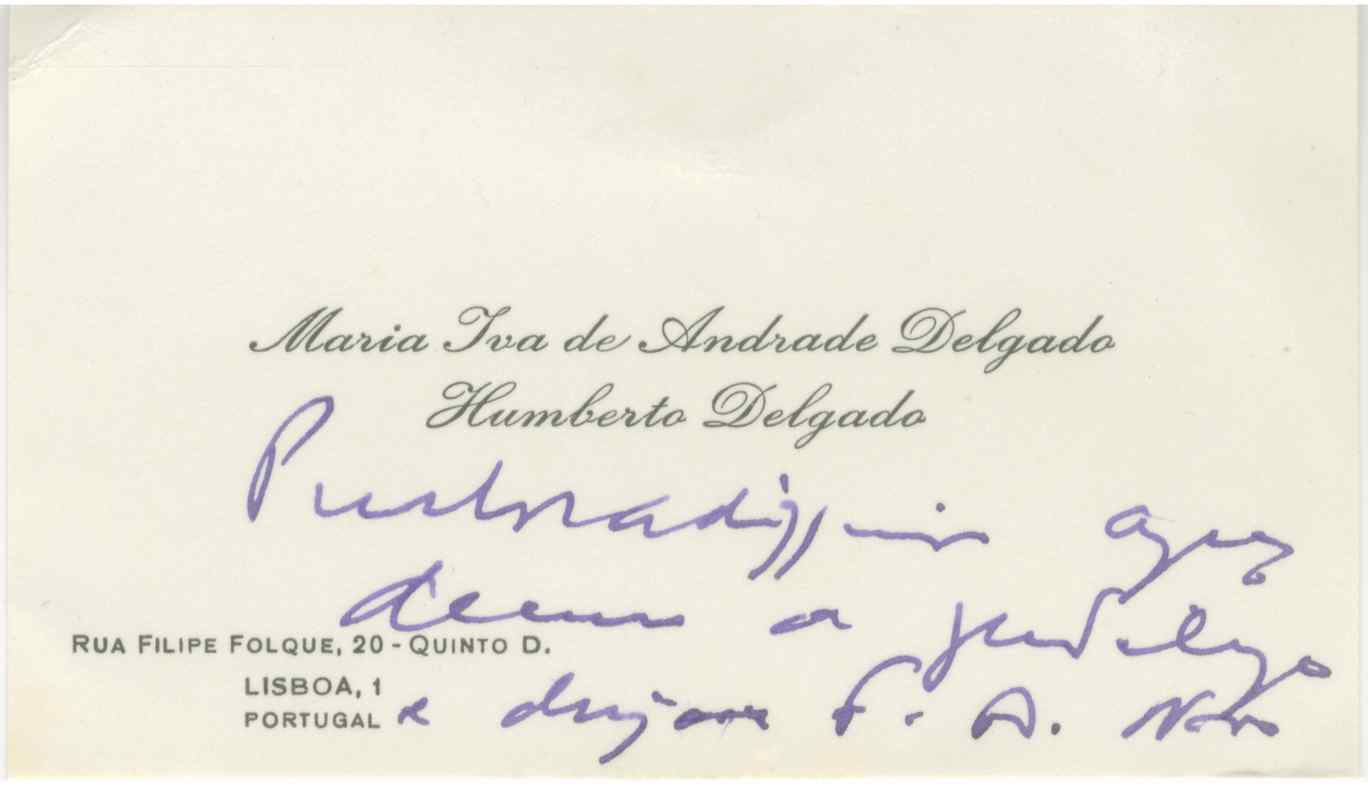 Maria Iva de Andrade Delgado
Humberto Delgado
Penhoradíssimos agra
decem a gentileza
RUA FILIPE FOLQUE, 20 - QUINTO D.
LISBOA, 1
PORTUGAL
e desejam F. A. Novo